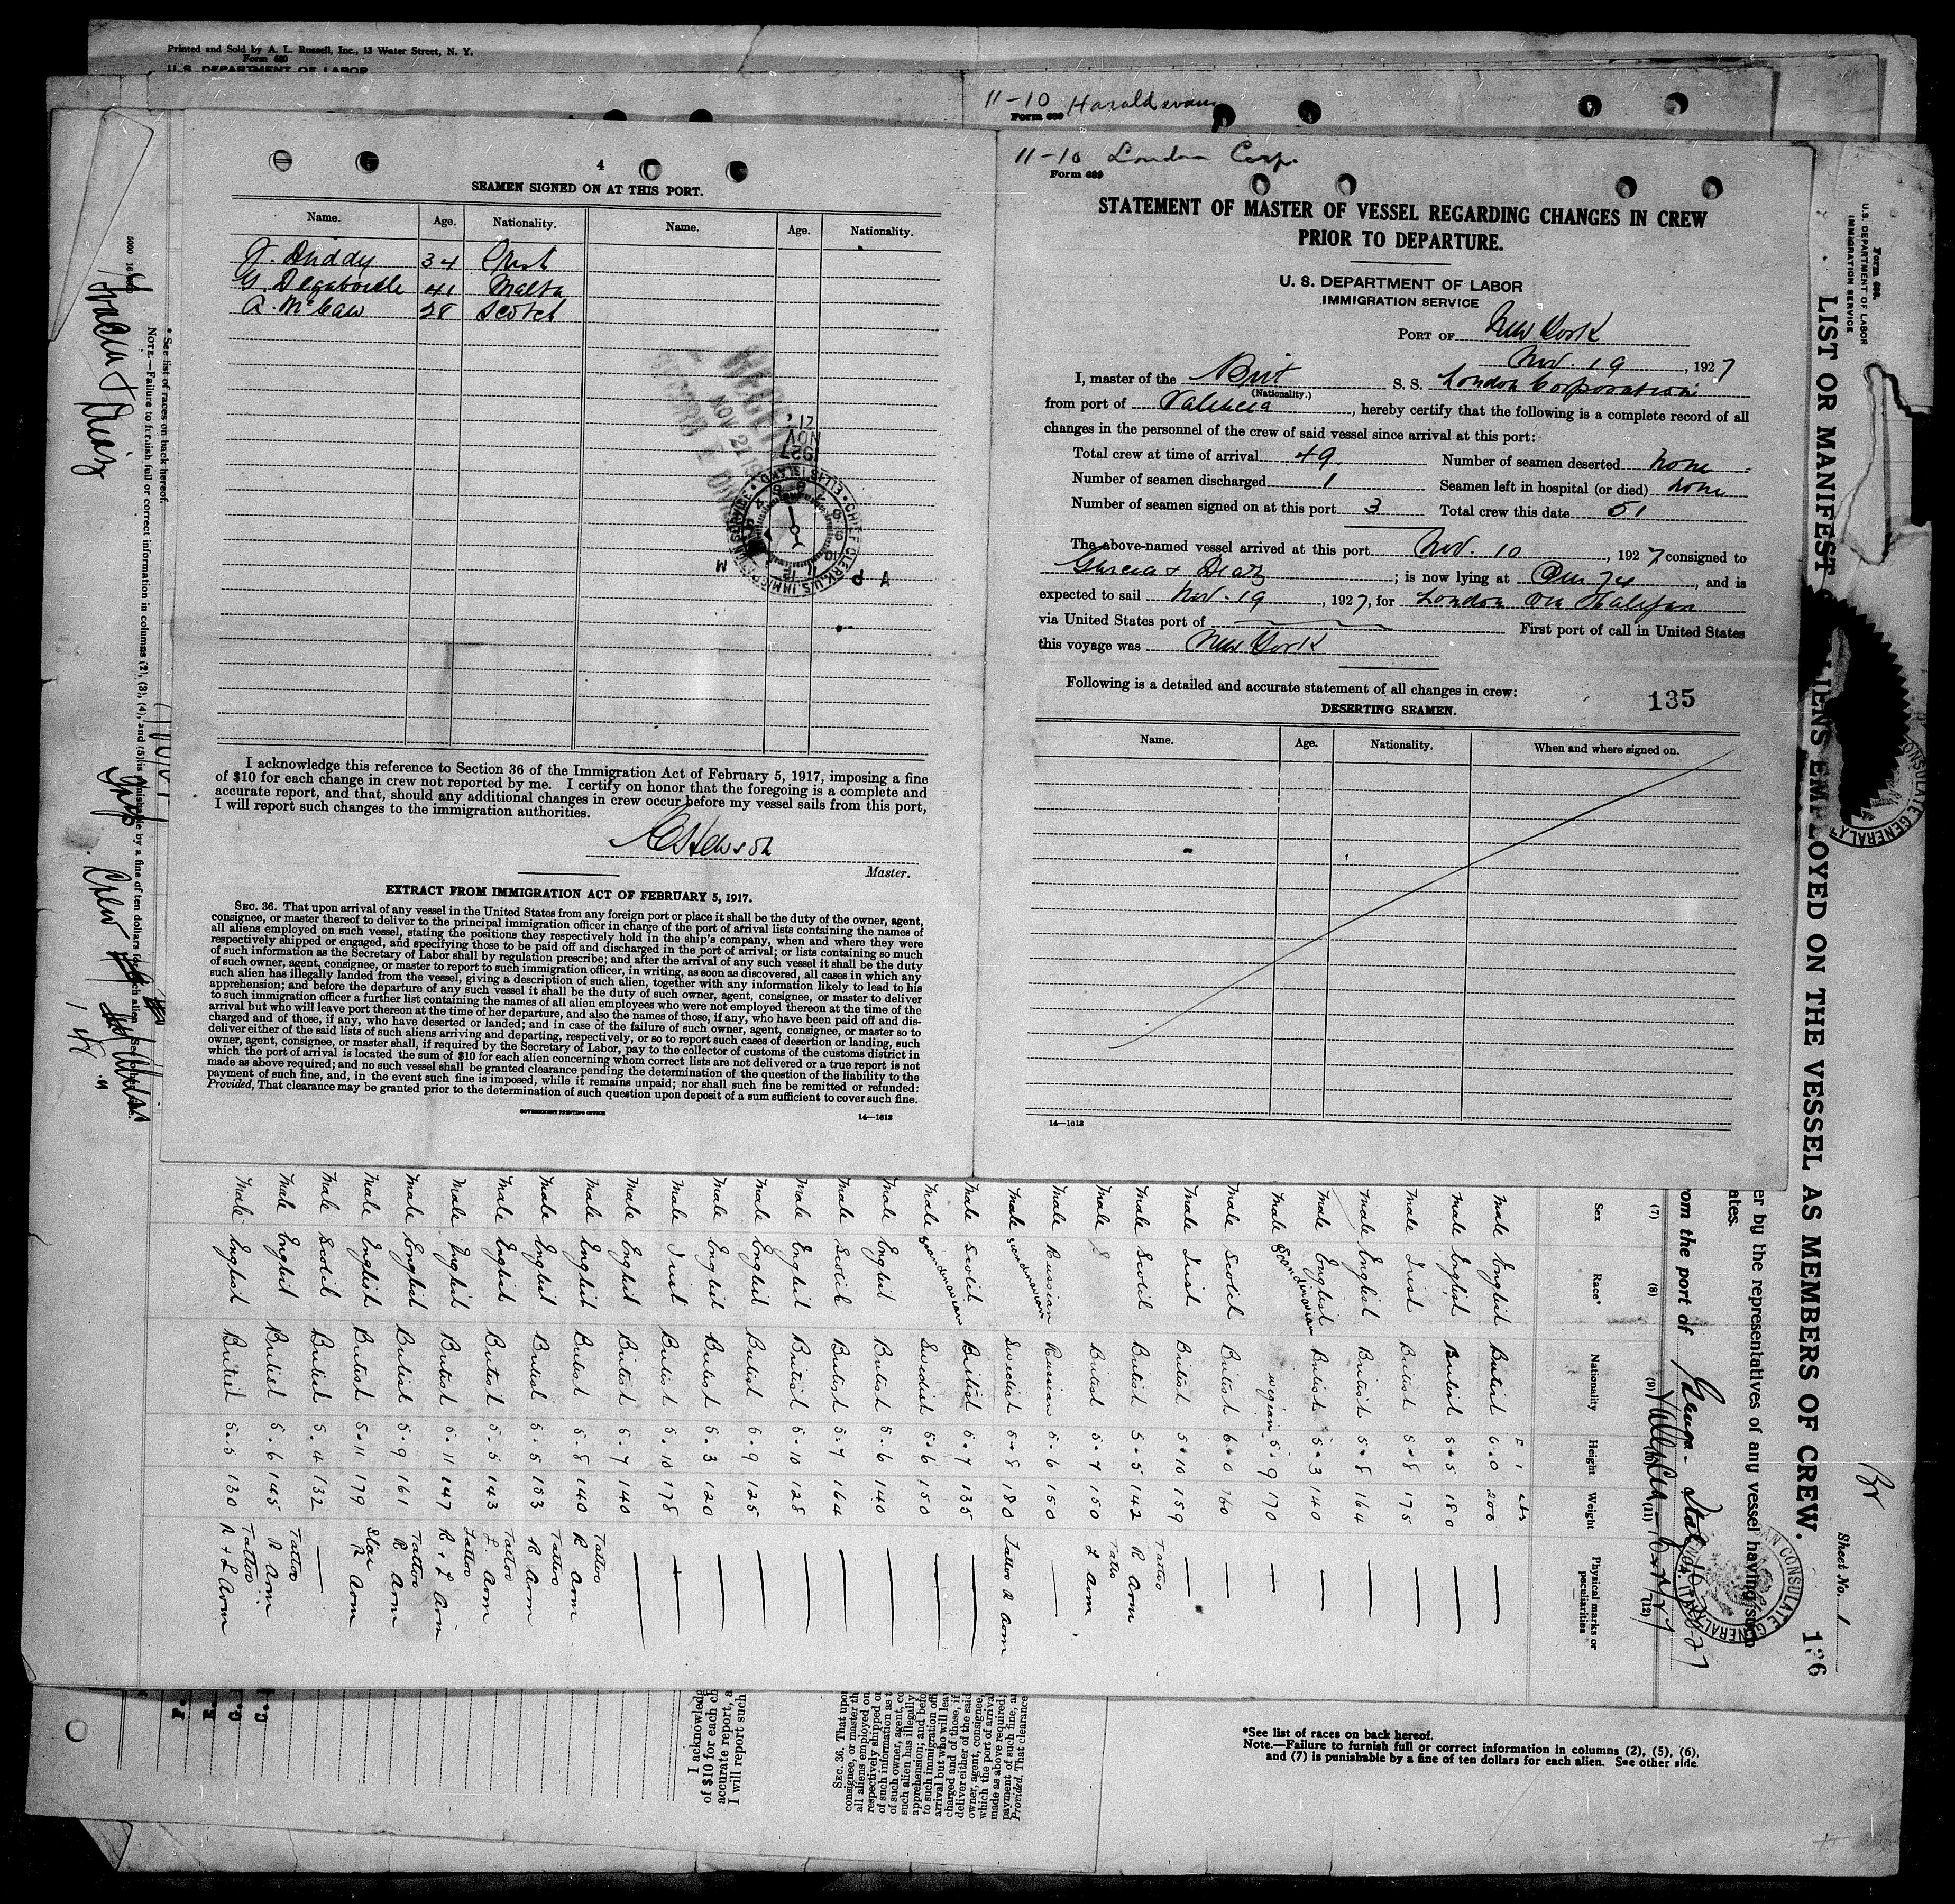 Printed and Sold by A. L. Russell, Inc., 13 Water Street, N. Y.
Form 680
U. S. DEPARTMENT OF LABOR
11-10
Form 689
4
SEAMEN SIGNED ON AT THIS PORT.
Name. Age. Nationality. Name. Age. Nationality.
J. Duddy 34 Irish
G. 41 Malta
A. McCaw 28 Scotch
NOV 21
1927
CHIEF CLERK U.S. IMMIGRATION SERVICE ELLIS ISLAND
A P M
I acknowledge this reference to Section 36 of the Immigration Act of February 5, 1917, imposing a fine
of $10 for each change in crew not reported by me. I certify on honor that the foregoing is a complete and
accurate report, and that, should any additional changes in crew occur before my vessel sails from this port,
I will report such changes to the immigration authorities.
Master.
EXTRACT FROM IMMIGRATION ACT OF FEBRUARY 5, 1917.
SEC. 36. That upon arrival of any vessel in the United States from any foreign port or place it shall be the duty of the owner, agent,
consignee, or master thereof to deliver to the principal immigration officer in charge of the port of arrival lists containing the names of
all aliens employed on such vessel, stating the positions they respectively hold in the ship's company, when and where they were
respectively shipped or engaged, and specifying those to be paid off and discharged in the port of arrival; or lists containing so much
of such information as the Secretary of Labor shall by regulation prescribe; and after the arrival of any such vessel it shall be the duty
of such owner, agent, consignee, or master to report to such immigration officer, in writing, as soon as discovered, all cases in which any
such alien has illegally landed from the vessel, giving a description of such alien, together with any information likely to lead to his
apprehension; and before the departure of any such vessel it shall be the duty of such owner, agent, consignee, or master to deliver
to such immigration officer a further list containing the names of all alien employees who were not employed thereon at the time of the
arrival but who will leave port thereon at the time of her departure, and also the names of those, if any, who have been paid off and dis-
charged and of those, if any, who have deserted or landed; and in case of the failure of such owner, agent, consignee, or master so to
deliver either of the said lists of such aliens arriving and departing, respectively, or so to report such cases of desertion or landing, such
owner, agent, consignee, or master shall, if required by the Secretary of Labor, pay to the collector of customs of the customs district in
which the port of arrival is located the sum of $10 for each alien concerning whom correct lists are not delivered or a true report is not
made as above required; and no such vessel shall be granted clearance pending the determination of the question of the liability to the
payment of such fine, and, in the event such fine is imposed, while it remains unpaid; nor shall such fine be remitted or refunded:
Provided, That clearance may be granted prior to the determination of such question upon deposit of a sum sufficient to cover such fine.
GOVERNMENT PRINTING OFFICE
14—1613
11-10 London Corp.
Form 689
STATEMENT OF MASTER OF VESSEL REGARDING CHANGES IN CREW
PRIOR TO DEPARTURE.
U. S. DEPARTMENT OF LABOR
IMMIGRATION SERVICE
PORT OF New York
Nov. 19, 1927
I, master of the Brit S. S. London Corporation
(Nationality.)
from port of Valencia, hereby certify that the following is a complete record of all
changes in the personnel of the crew of said vessel since arrival at this port:
Total crew at time of arrival 49 Number of seamen deserted none
Number of seamen discharged 1 Seamen left in hospital (or died) none
Number of seamen signed on at this port 3 Total crew this date 51
The above-named vessel arrived at this port Nov. 10, 1927, consigned to
Garcia & Diaz; is now lying at Pier 74, and is
expected to sail Nov. 19, 1927, for London via Halifax
via United States port of First port of call in United States
this voyage was New York
Following is a detailed and accurate statement of all changes in crew:
135
DESERTING SEAMEN.
Name. Age. Nationality. When and where signed on.
14—1613
Form 680.
U. S. DEPARTMENT OF LABOR
IMMIGRATION SERVICE
LIST OR MANIFEST ALIENS EMPLOYED ON THE VESSEL AS MEMBERS OF CREW.
Br
Sheet No. 1
136
er by the representatives of any vessel having such
ates.
rom the port of
(7) (8) (9) (10) (11) (12)
Sex Race* Nationality Height Weight Physical marks or peculiarities
Male English British 6-0 200
Male English British 5-5 180
Male Irish British 5-8 175
Male English British 5-8 164
Male English British 5-3 140
Male Scandinavian wegian 5-9 170
Male Scotch British 6-0 160
Male Irish British 5-10 159
Male Scotch British 5-5 142 Tattoo R Arm
Male British 5-7 150 Tattoo L Arm
Male Russian Russian 5-6 150
Male Scandinavian Swedish 5-8 180 Tattoo R Arm
Male Scotch British 5-7 135
Male Scandinavian Swedish 5-6 150
Male English British 5-6 140
Male Scotch British 5-7 164
Male English British 5-10 128
Male English British 5-9 125
Male English British 5-3 120
Male Irish British 5-10 178
Male English British 5-7 140
Male English British 5-8 140 Tattoo R Arm
Male English British 5-5 153 Tattoo R Arm
Male English British 5-5 143 Tattoo L. Arm
Male English British 5-11 147 Tattoo R & L Arm
Male English British 5-9 161 Tattoo R Arm
Male English British 5-11 179 Star R Arm
Male Scotch British 5-4 132
Male English British 5-6 145 Tattoo R Arm
Male English British 5-5 130 Tattoo R & L Arm
* See list of races on back hereof.
NOTE.—Failure to furnish full or correct information in columns (2), (3), (4), and (5) is punishable by a fine of ten dollars
Garcia & Diaz
Crew
P.
E.
G.
C.
I acknowledg
of $10 for each ch
accurate report, a
I will report such
SEC. 36. That upon
consignee, or master th
all aliens employed on
respectively shipped or
of such information as t
of such owner, agent, co
such alien has illegally
apprehension; and befo
to such immigration offi
arrival but who will leav
charged and of those, if
deliver either of the said
owner, agent, consignee,
which the port of arrival
made as above required;
payment of such fine, a
Provided, That clearance
*See list of races on back hereof.
Note.—Failure to furnish full or correct information in columns (2), (5), (6),
and (7) is punishable by a fine of ten dollars for each alien. See other side.